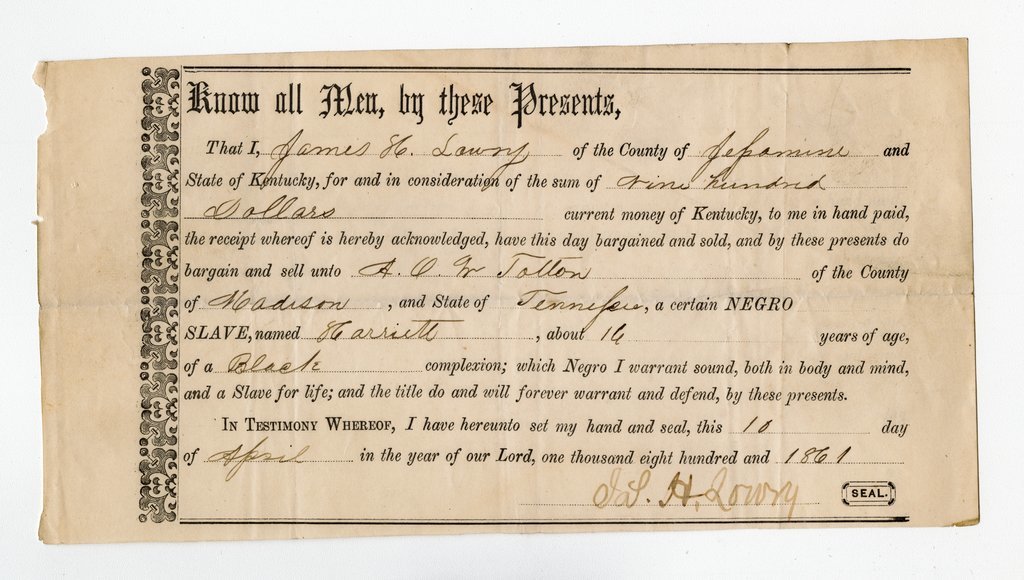 Know all Men, by these Presents,
That I, James H. Lowry of the County of Jessamine and
State of Kentucky, for and in consideration of the sum of nine hundred
Dollars current money of Kentucky, to me in hand paid,
the receipt whereof is hereby acknowledged, have this day bargained and sold, and by these presents do
bargain and sell unto A. O. W Totton of the County
of Madison, and State of Tennessee, a certain NEGRO
SLAVE, named Harriett, about 16 years of age,
of a Black complexion; which Negro I warrant sound, both in body and mind,
and a Slave for life; and the title do and will forever warrant and defend, by these presents.
IN TESTIMONY WHEREOF, I have hereunto set my hand and seal, this 10 day
of April in the year of our Lord, one thousand eight hundred and 1861
Js. H. Lowry SEAL.